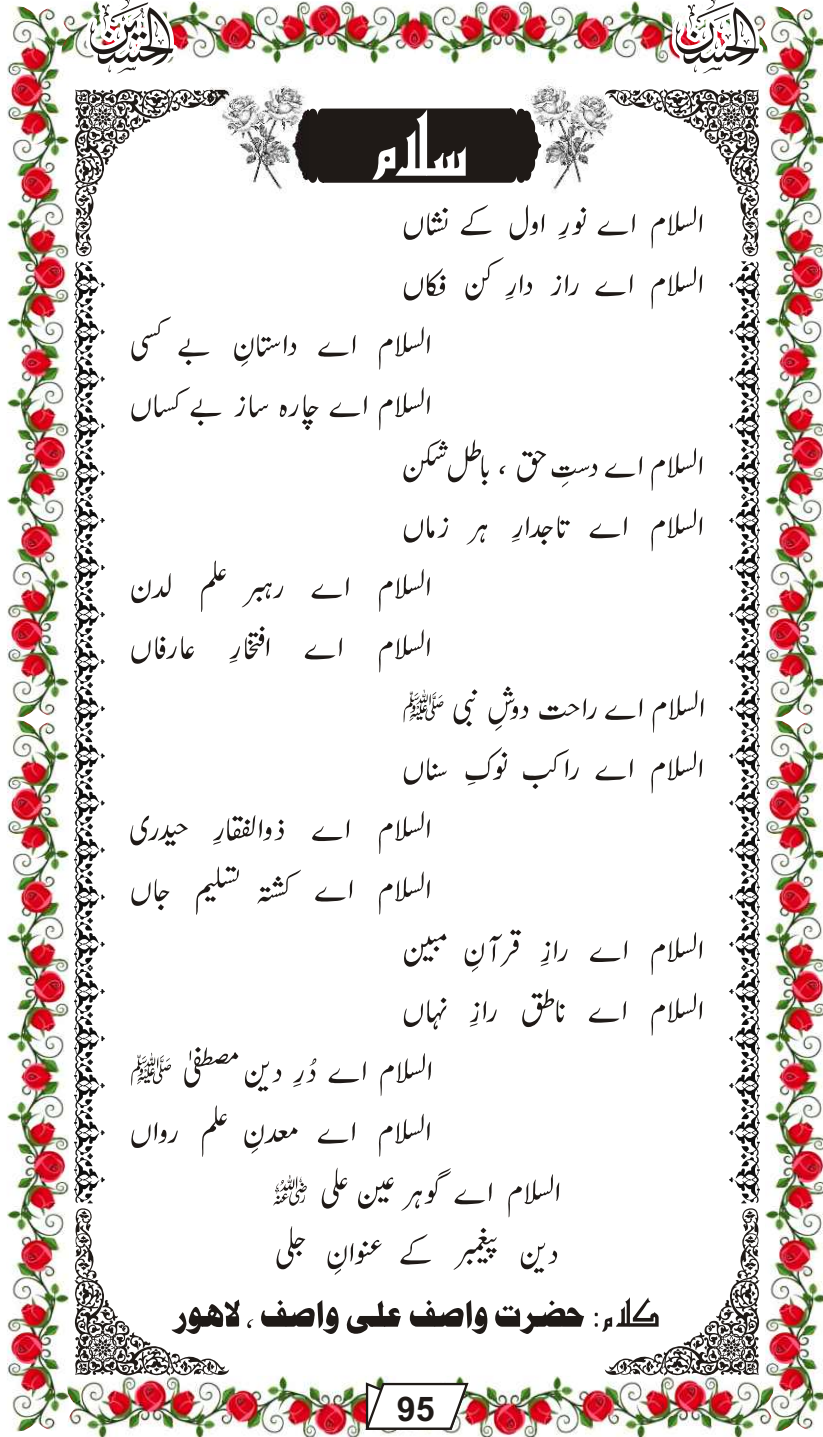 الحسین الحسین
سلام
السلام اے نورِ اول کے نشاں
السلام اے راز دارِ کن فکاں
السلام اے داستانِ بے کسی
السلام اے چارہ ساز بے کساں
السلام اے دستِ حق ، باطل شکن
السلام اے تاجدارِ ہر زماں
السلام اے رہبر علم لدن
السلام اے افتخارِ عارفاں
السلام اے راحت دوشِ نبی ﷺ
السلام اے راکب نوکِ سناں
السلام اے ذوالفقارِ حیدری
السلام اے کشتہ تسلیم جاں
السلام اے رازِ قرآنِ مبین
السلام اے ناطق رازِ نہاں
السلام اے دُرِ دین مصطفیٰ ﷺ
السلام اے معدنِ علم رواں
السلام اے گوہر عین علی رضی اللہ عنہ
دین پیغمبر کے عنوانِ جلی
کلام: حضرت واصف علی واصف ، لاهور
95